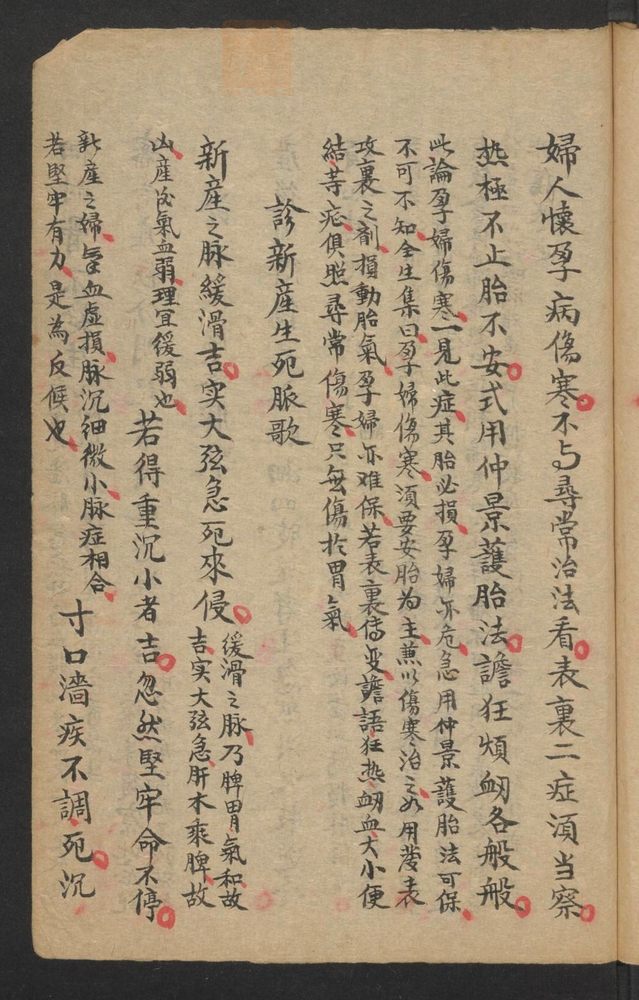 婦人懷孕病傷寒不与尋常治法看表裏二症須当察
热極不止胎不安式用仲景護胎法譫狂煩衂各般般
此論孕婦傷寒一見此症其胎必損孕婦亦危急用仲景護胎法可保
不可不知全生集曰孕婦傷寒須要安胎为主蕙以傷寒治之如用發表
攻裏之劑損動胎氣孕婦亦难保若表裏傳变譫語狂热衂血大小便
結等症俱照尋常傷寒只無傷於胃氣
診新産生死脈歌
新産之脉緩滑吉实大弦急死來侵
緩滑之脉乃脾胃氣和故
吉实大弦急肝木乘脾故
凶産後氣血弱理宜緩弱也
若得重沉小者吉忽然堅牢命不停
新産之婦氣血虛損脉沉细微小脉症相合
若堅牢有力是為反候也
寸口濇疾不調死沉